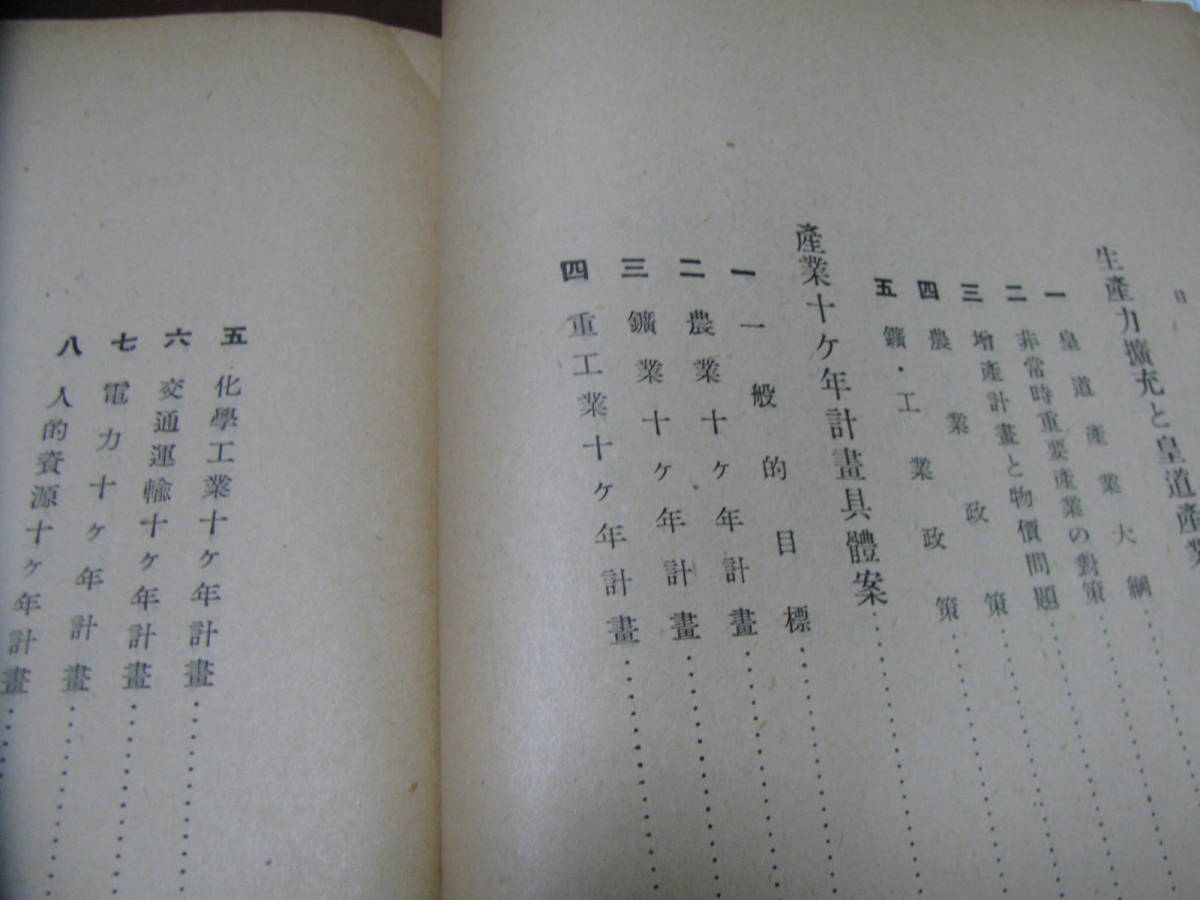 目
生產力擴充と皇道產業
一 皇道產業大綱
二 非常時重要產業の對策
三 增產計畫と物價問題
四 農業政策
五 鑛・工業政策
產業十ケ年計畫具體案
一 一般的目標
二 農業十ケ年計畫
三 鑛業十ケ年計畫
四 重工業十ケ年計畫
五 化學工業十ケ年計畫
六 交通運輸十ケ年計畫
七 電力十ケ年計畫
八 人的資源十ケ年計畫